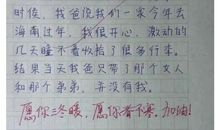 时候，我爸说我们一家今年去
海南过年，我很开心，激动的
几天睡不着收拾了很多行李。
结果当天我爸只带了那个女人
和那个弟弟，并没有我。
愿你三冬暖，愿你春不寒，加油！